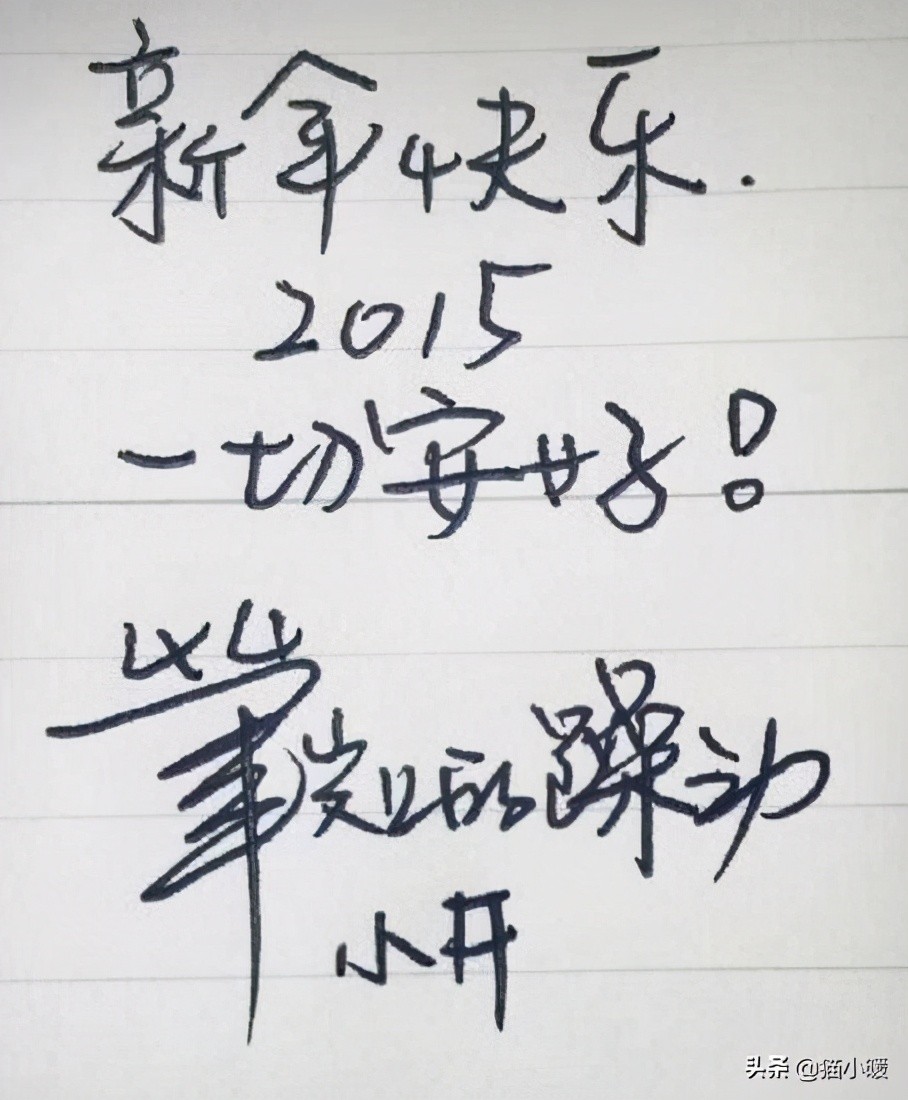 新年快乐.
2015
一切安好!
笔 的躁动
小开
头条 @猫小暖